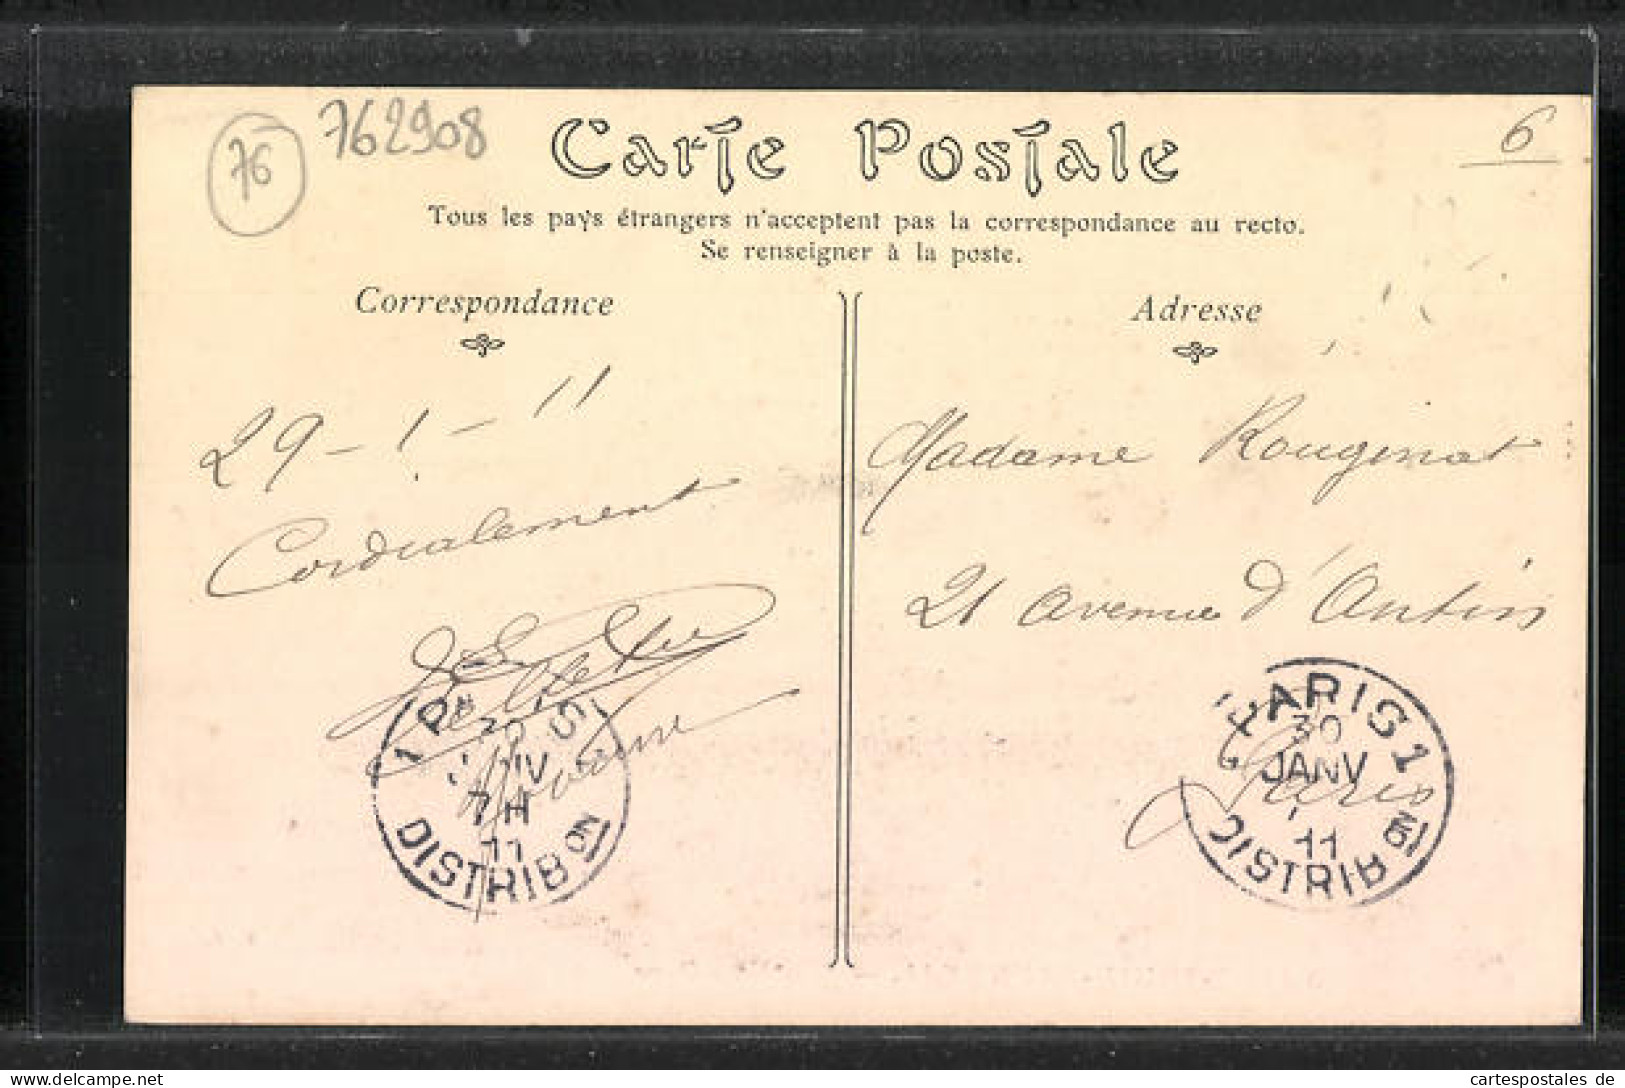 76
762908
6
Carte Postale
Tous les pays étrangers n'acceptent pas la correspondance au recto.
Se renseigner à la poste.
Correspondance
29-1-11
Cordialement
1 PARIS
30
JANV
7H
11
DISTRIB ON
Adresse
Madame Rouginot
21 avenue d'Antin
Paris
PARIS 1
30
JANV
11
DISTRIB ON
cartespostales de